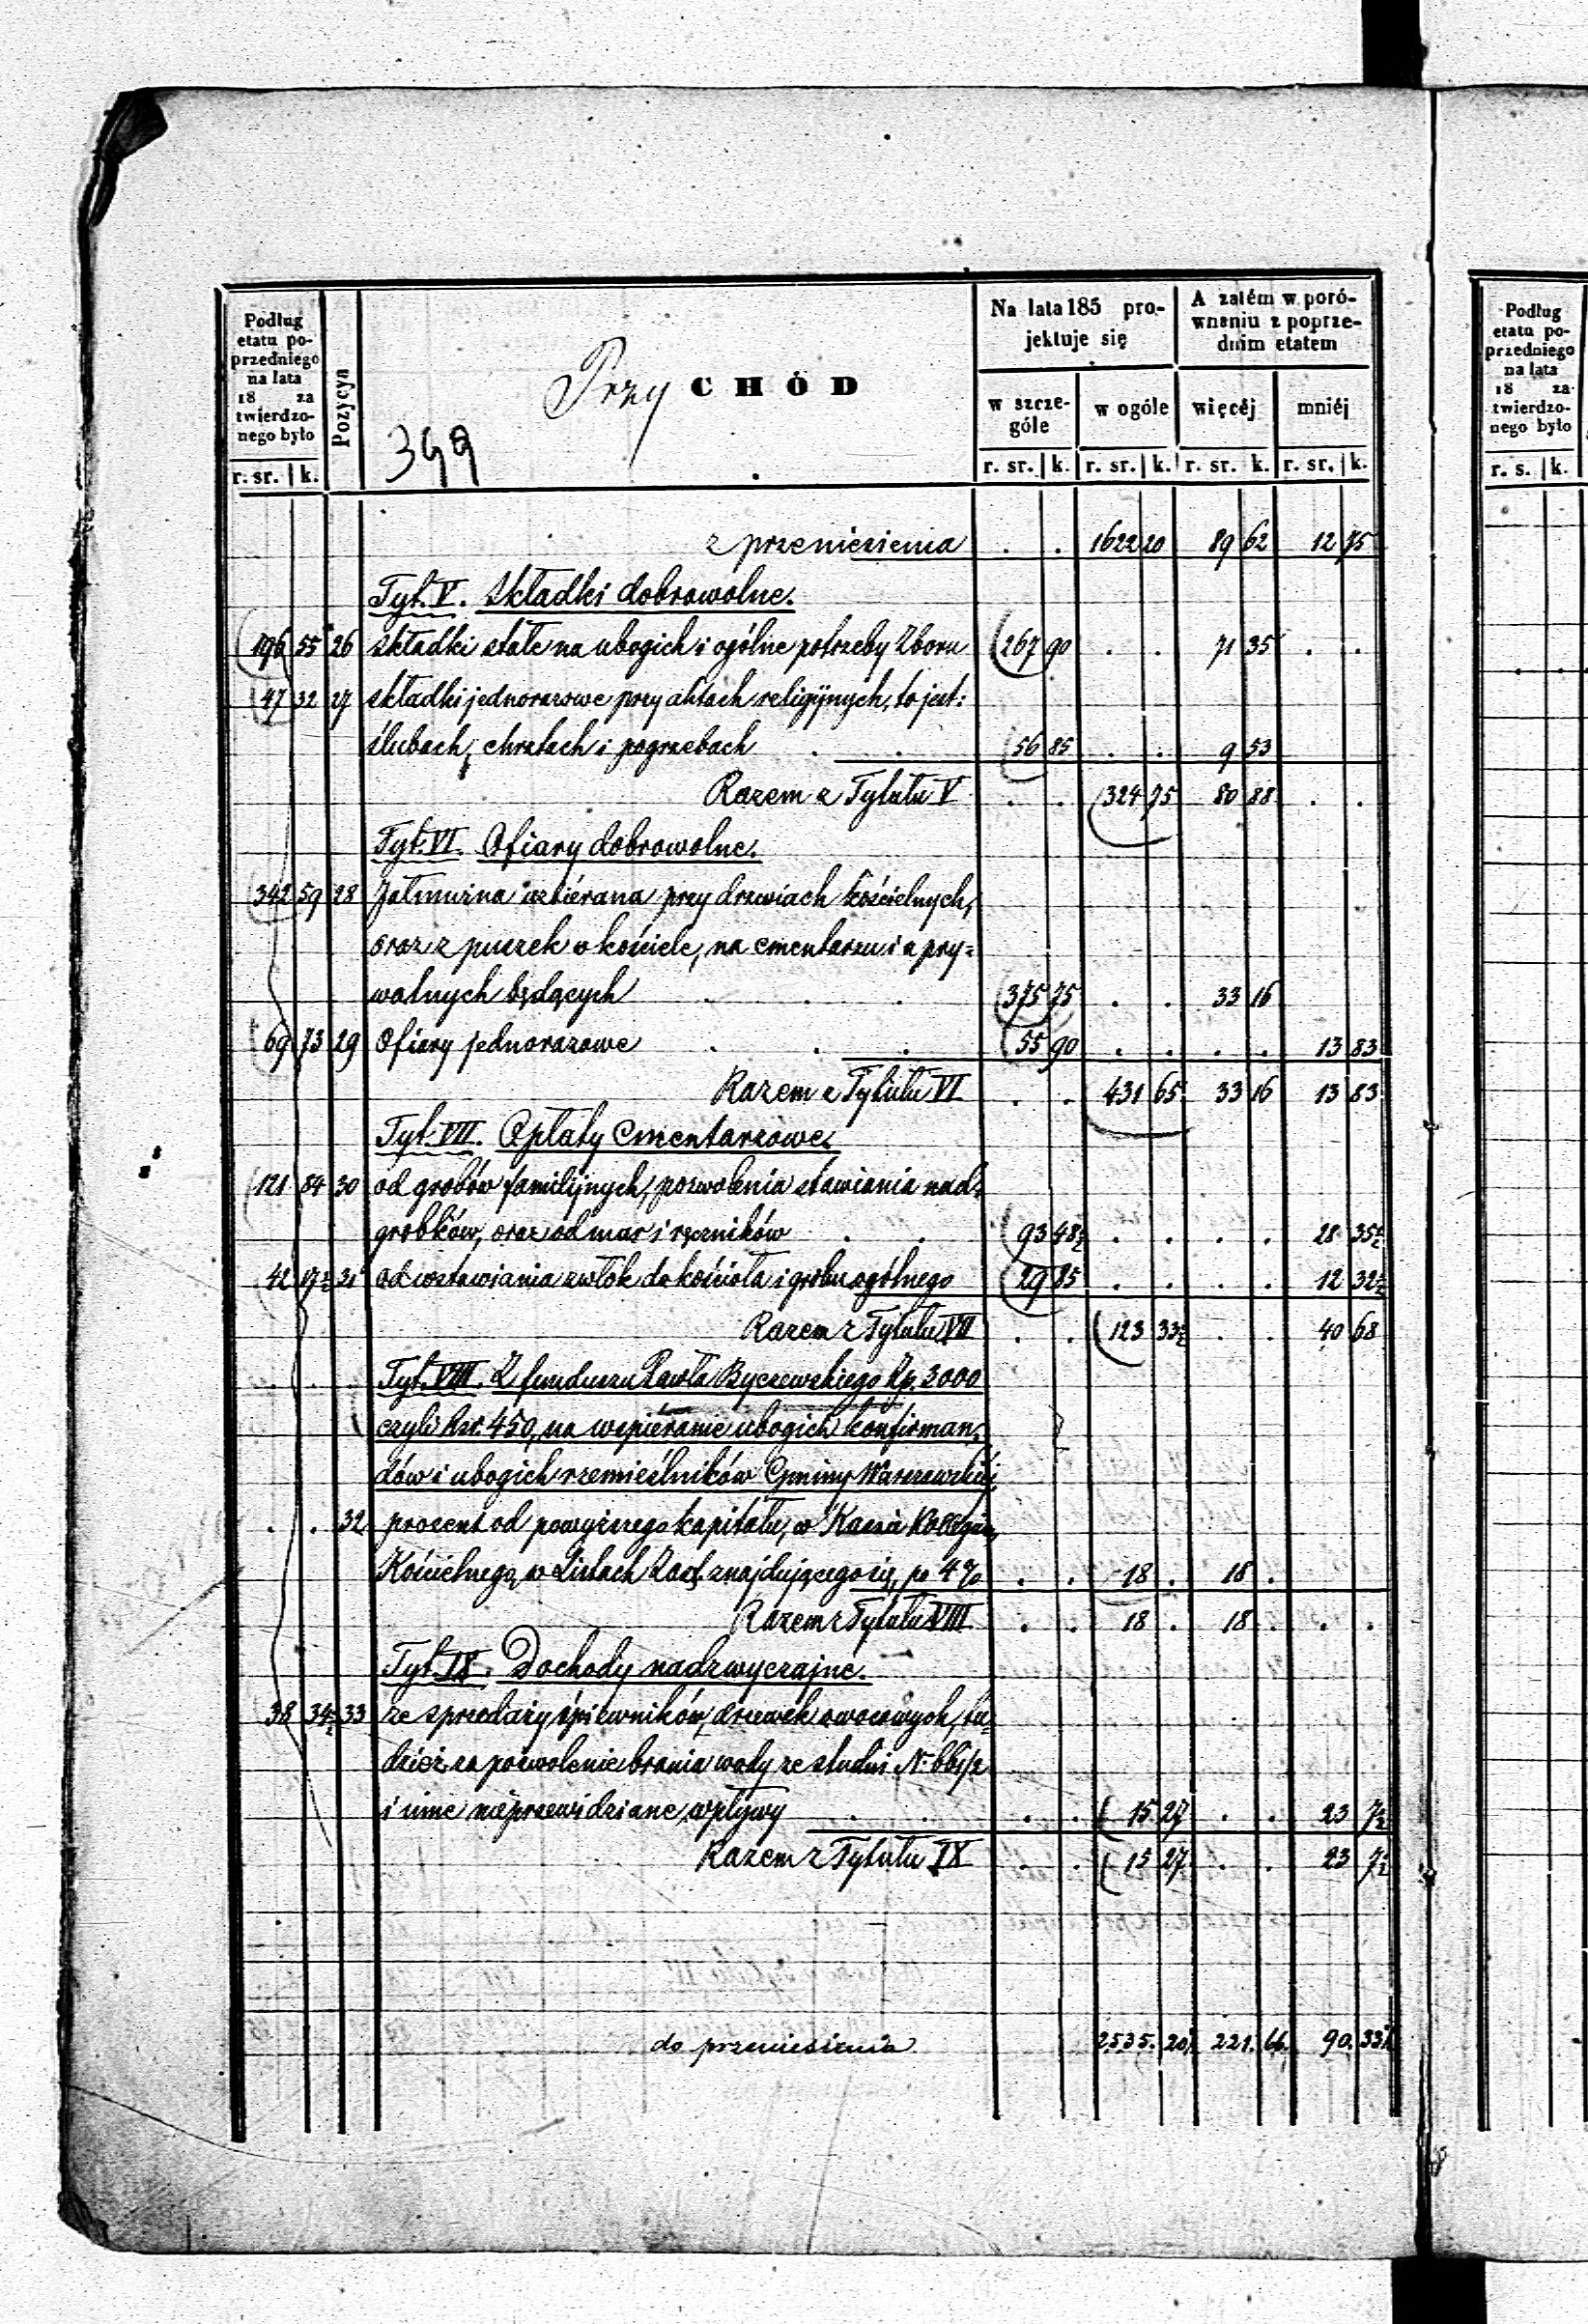 Podług etatu poprzedniego na lata 18 za twierdzonego było
Pozycya
Przy CHÓD
399
Na lata 185 projektuje się
A zatém w porównaniu z poprzednim etatem
w szczególe
w ogóle
więcéj
mniéj
r. sr. k. r. sr. k. r. sr. k. r. sr. k. r. sr. k.
z przeniesienia . . 1622 20 89 62 12 75
Tyt. V. Składki dobrowolne.
196 55 26 składki stałe na ubogich i ogólne potrzeby Zboru 267 90 . . 71 35 . .
47 32 27 składki jednorazowe przy aktach religijnych, to jest:
ślubach, chrztach i pogrzebach . . 56 85 . . 9 53
Razem z Tytułu V . . 324 75 80 88 . .
Tyt. VI. Ofiary dobrowolne.
342 59 28 Jałmużna uzbiérana przy drzwiach kościelnych,
oraz z puszek w kościele, na cmentarzu i u pry=
watnych będących . . . 375 75 . . 33 16
69 73 29 Ofiary jednorazowe . . . 55 90 . . . . 13 83
Razem z Tytułu VI . . 431 65 33 16 13 83
Tyt. VII. Opłaty Cmentarzowe.
121 84 30 od grobów familijnych, pozwolenia stawiania nad=
grobków, oraz od mar i ręczników . . 93 48½ . . . . 28 35½
42 17½ 31 od wstawiania zwłok do kościoła i grobu ogólnego 29 85 . . . . 12 32½
Razem z Tytułu VII . . 123 33½ . . 40 68
. . Tyt. VIII. Z funduszu Pawła Byczewskiego Zp. 3000
czyli Rsr. 450, na wspiéranie ubogich konfirman=
dów i ubogich rzemieślników Gminy Warszawskiéj.
. . 32 procent od powyższego kapitału, w Kassie Kollegium
Kościelnego, w Listach Zast. znajdującego się, po 4% . . 18 . 18 .
Razem z Tytułu VIII . . 18 . 18 . . .
Tyt. IX. Dochody nadzwyczajne.
38 34½ 33 ze sprzedaży śpiewników, drzewek owocowych, tu=
dzież za pozwolenie brania wody ze studni N. 661/2
i inne nieprzewidziane wpływy . . . . 15 27 . . 23 7½
Razem z Tytułu IX . . 15 27 . . 23 7½
do przeniesienia 2535. 20½ 221. 66. 90. 33½
Podług etatu poprzedniego na lata 18 za twierdzonego było
r. s. k.